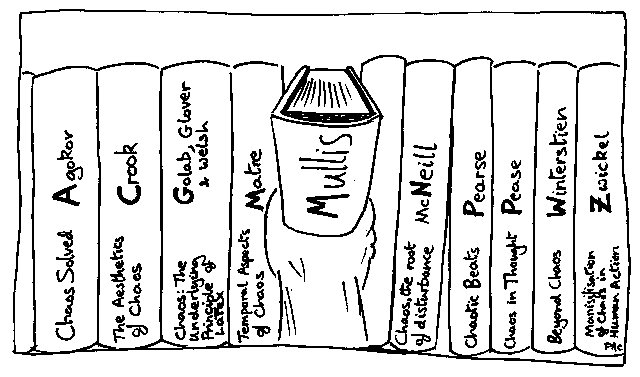 Chaos Solved Agokov
The Aesthetics
of Chaos
Crook
Chaos: The
Underlying
Principle of
LaTeX
Golab, Glover
& Welsh
Temporal Aspects
of Chaos
Matre
Mullis
Chaos, the root
of disturbance
McNeill
Chaotic Beats Pearse
Chaos in Thought Pease
Beyond Chaos Winterstien
of Chaos in
Human Action
Zwickel